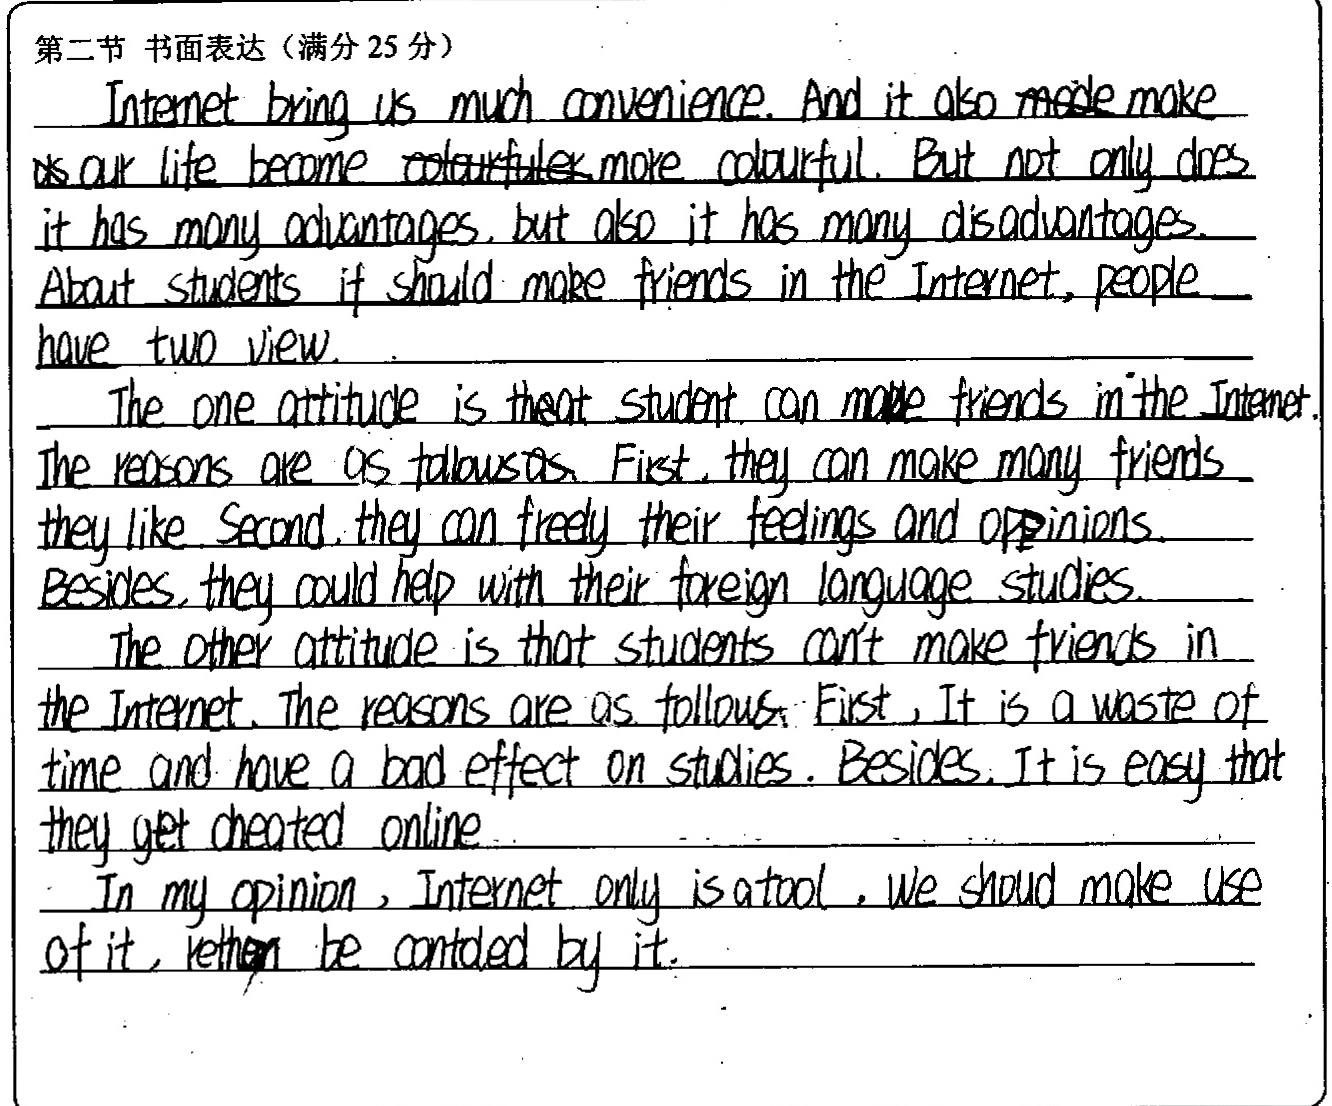 第二节 书面表达（满分 25 分）
Internet bring us much convenience. And it also make
our life become more colourful. But not only does
it has many advantages, but also it has many disadvantages.
About students if should make friends in the Internet, people
have two view.
The one attitude is that student can make friends in the Internet.
The reasons are as follows. First, they can make many friends
they like. Second, they can freely their feelings and oppinions.
Besides, they could help with their foreign language studies.
The other attitude is that students can't make friends in
the Internet. The reasons are as follows. First, It is a waste of
time and have a bad effect on studies. Besides, It is easy that
they get cheated online
In my opinion, Internet only is a tool. We shoud make use
of it, rethen be contoled by it.